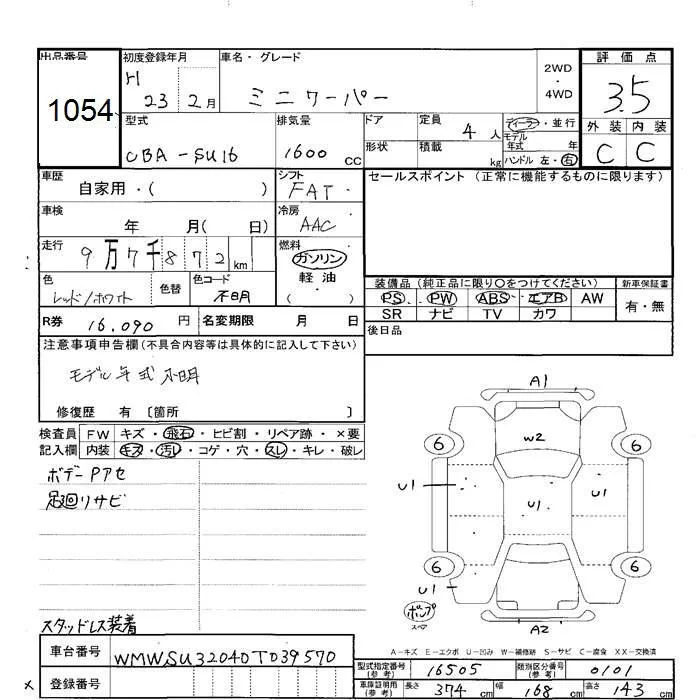 出品番号 初度登録年月 車名・グレード 評価点
1054 H 23 2月 ミニクーパー 2WD・4WD 3.5
型式 排気量 ドア 定員 4人 ディーラー・並行 外装 内装
CBA-SU16 1600 CC 形状 積載 kg モデル年式 年 C C
ハンドル 左・右
車歴 シフト セールスポイント(正常に機能するものに限ります)
自家用・( ) FAT
車検 年 月( 日) 冷房 AAC
走行 9万7千872km 燃料 ガソリン
軽油・
( )
色 レッド/ホワイト 色替 色コード 不明
装備品(純正品に限り○をつけてください) 新車保証書
PS PW ABS エアB AW 有・無
SR ナビ TV カワ
R券 16,090円 名変期限 月 日
後日品
注意事項申告欄(不具合内容等は具体的に記入して下さい)
モデル年式不明
修復歴 有〔箇所 〕
検査員 FW キズ・飛石・ヒビ割・リペア跡・×要
記入欄 内装 キズ・汚レ・コゲ・穴・スレ・キレ・破レ
ボデーPアセ
足廻リサビ
スタッドレス装着
A1
6 W2 6
U1 U1 U1
6 6
U1
ポンプ
スペア
A2
A-キズ E-エクボ U-凹み W-補修跡 S-サビ C-腐食 XX-交換済
車台番号 WMWSU32040TD39570
登録番号
型式指定番号(参考) 16505 類別区分番号(参考) 0101
車庫証明用(参考) 長さ 374cm 幅 168cm 高さ 143cm
×